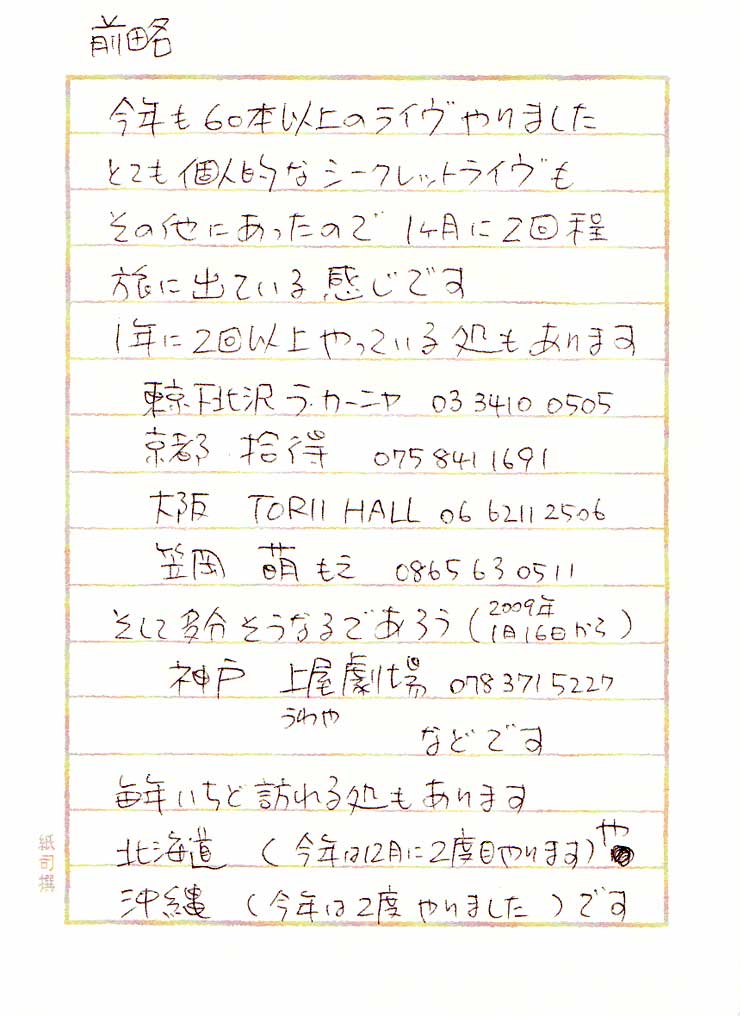 前略
今年も60本以上のライヴやりました
とても個人的なシークレットライヴも
その他にあったので 1ヶ月に2回程
旅に出ている感じです
1年に2回以上やっている処もあります
東京下北沢 ラ・カーニャ 03 3410 0505
京都 拾得 075 841 1691
大阪 TORII HALL 06 6211 2506
笠岡 萌 もえ 0865 63 0511
そして多分そうなるであろう(2009年
1月16日から)
神戸 上尾劇場 078 371 5227
うわや
などです
毎年いちど訪れる処もあります
北海道 (今年は12月に2度目やります)や
沖縄 (今年は2度やりました)です
紙司撰